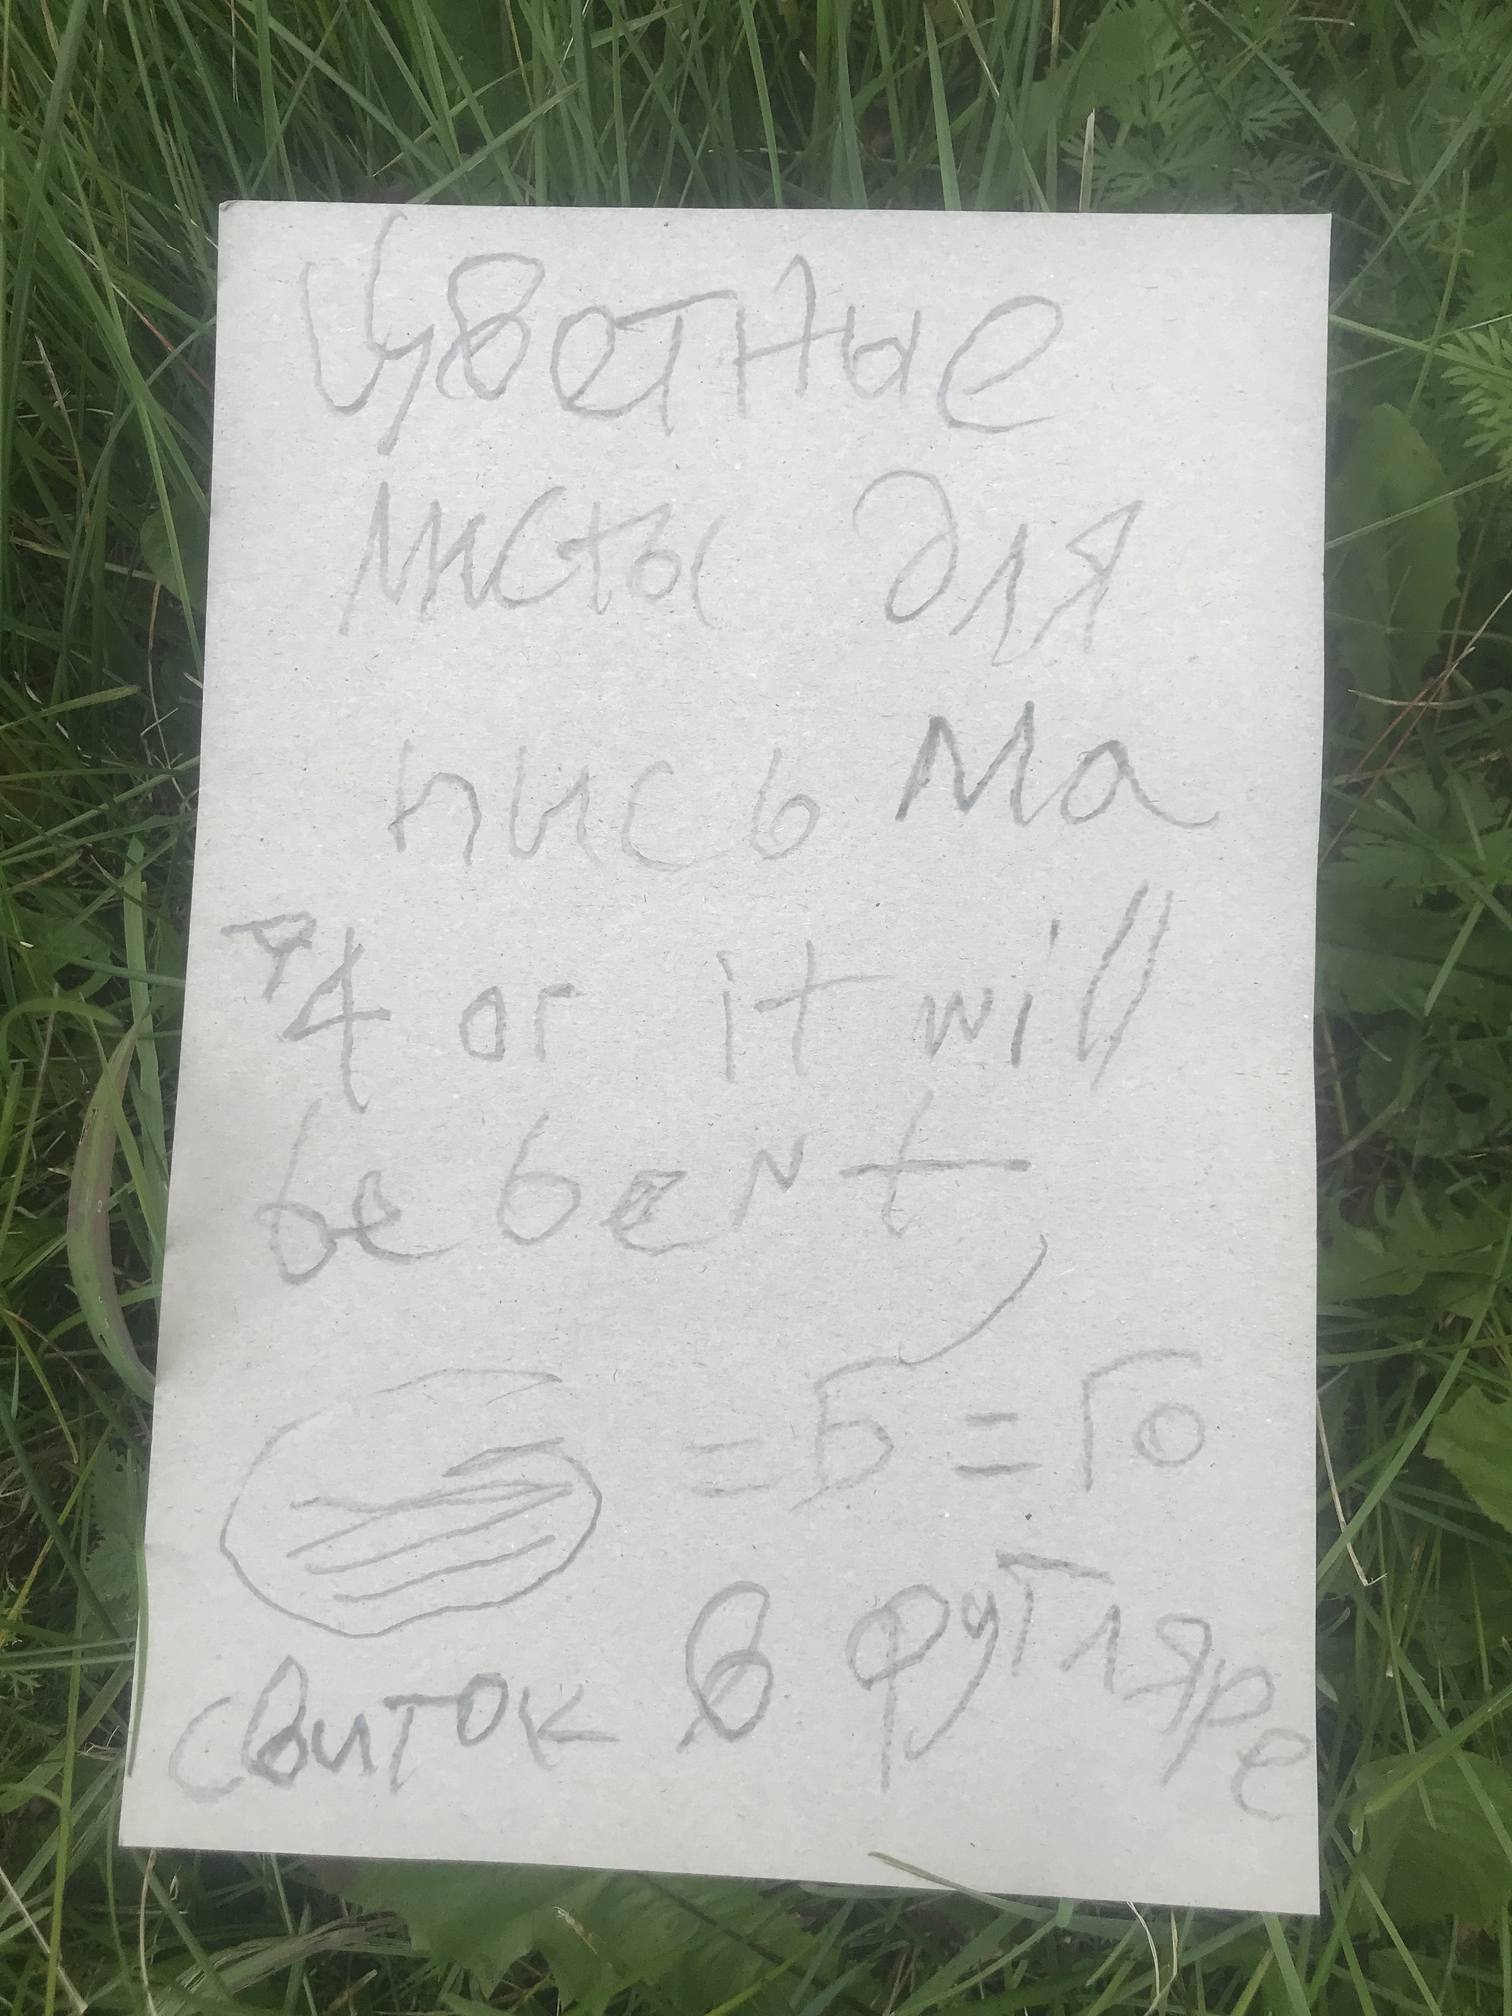 Цветные
листы для
письма
A4 or it will
be bent
= Б = Го
свиток в футляре